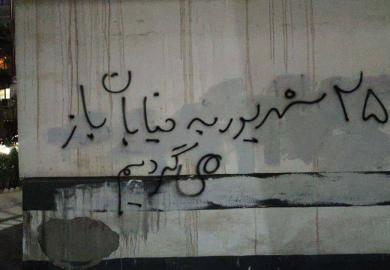 ۲۵ شهریور به خیابان باز
می گردیم